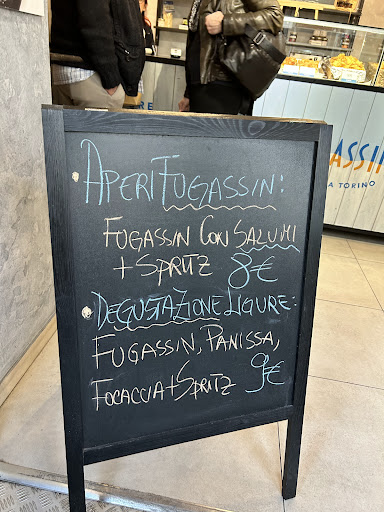 APERIFUGASSIN:
FUGASSIN CON SALUMI
+ SPRITZ 8€
DEGUSTAZIONE LIGURE:
FUGASSIN, PANISSA,
FOCACCIA + SPRITZ 9€
ASSI
A TORINO